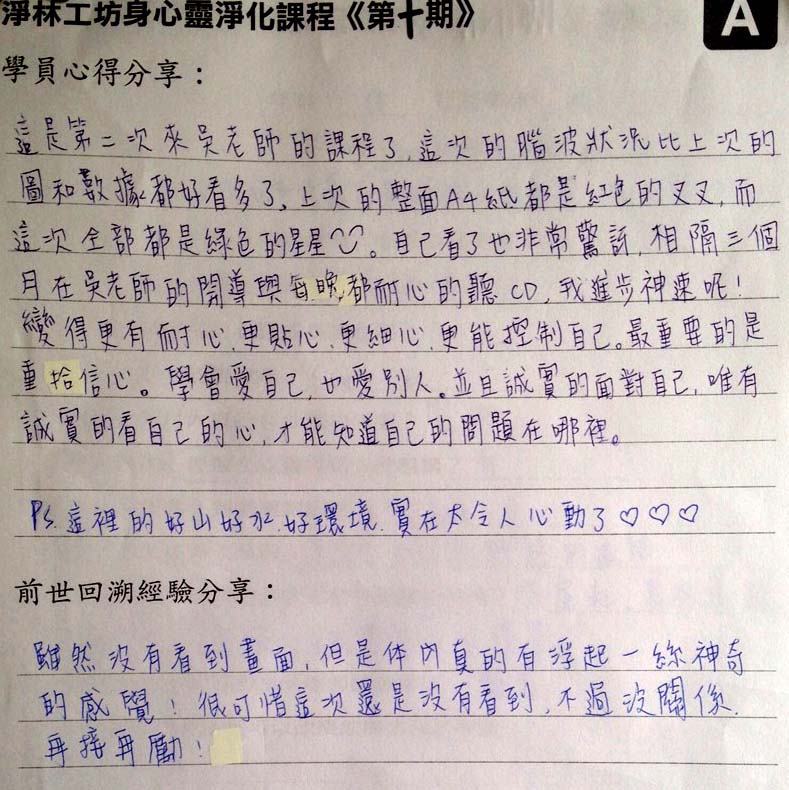 淨林工坊身心靈淨化課程《第十期》
A
學員心得分享：
這是第二次來吳老師的課程了，這次的腦波狀況比上次的
圖和數據都好看多了，上次的整面A4紙都是紅色的叉叉，而
這次全部都是綠色的星星。自己看了也非常驚訝，相隔三個
月在吳老師的開導與每晚都耐心的聽CD，我進步神速呢！
變得更有耐心、更貼心、更細心、更能控制自己。最重要的是
重拾信心。學會愛自己，也愛別人。並且誠實的面對自己，唯有
誠實的看自己的心，才能知道自己的問題在哪裡。
PS.這裡的好山好水、好環境，實在太令人心動了♡♡♡
前世回溯經驗分享：
雖然沒有看到畫面，但是体內真的有浮起一絲神奇
的感覺！很可惜這次還是沒有看到，不過沒關係，
再接再勵！